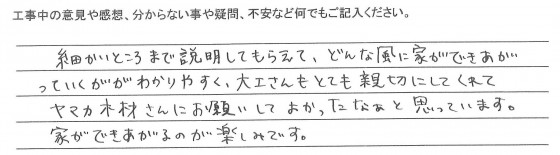 工事中の意見や感想、分からない事や疑問、不安など何でもご記入ください。
細かいところまで説明してもらえて、どんな風に家ができあが
っていくがががわかりやすく、大工さんもとても親切にしてくれて
ヤマカ木材さんにお願いしておかったなぁと思っています。
家ができあがるのが楽しみです。